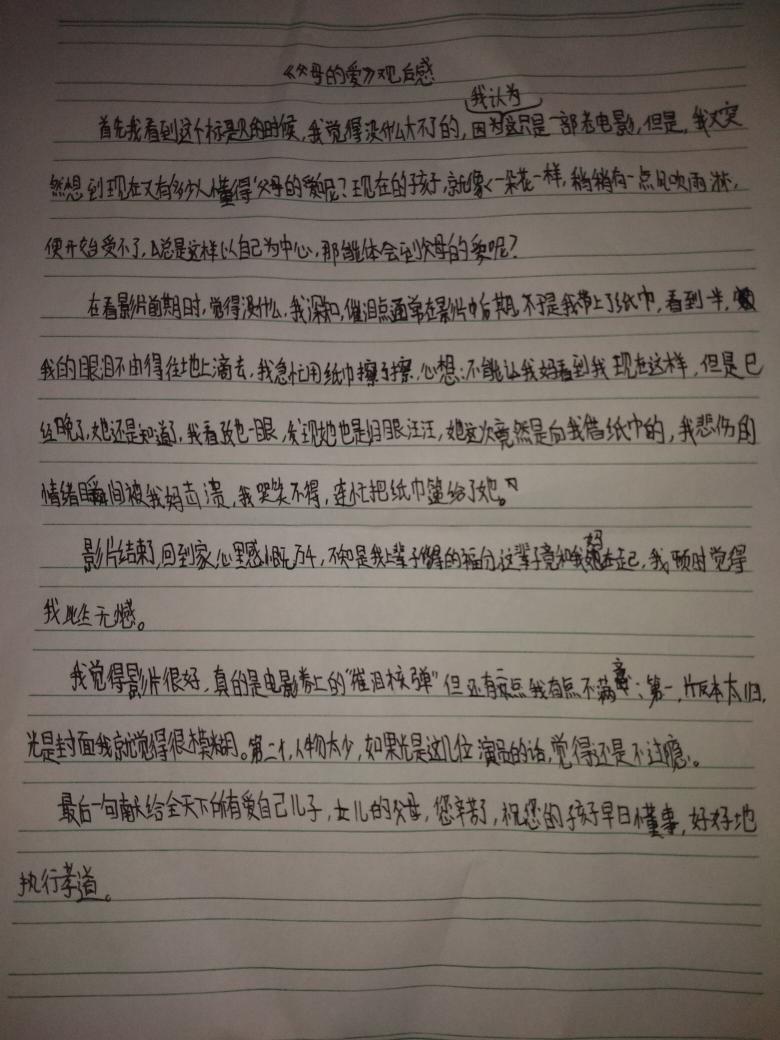 《父母的爱》观后感
我认为
首先我看到这个标题的时候，我觉得没什么大不了的，因为这只是一部老电影，但是，我又突
然想到现在又有多少人懂得父母的爱呢？现在的孩子，就像一朵花一样，稍稍有一点风吹雨淋，
便开始受不了，总是这样以自己为中心，那能体会到父母的爱呢？
在看影片前期时，觉得没什么，我深知，催泪点通常在影片中后期，于是我带上了纸巾，看到一半，
我的眼泪不由得往地上滴去，我急忙用纸巾擦了擦，心想：不能让我妈看到我现在这样，但是已
经晚了，她还是知道了，我看了她一眼，发现她也是泪眼汪汪，她这次竟然是向我借纸巾的，我悲伤的
情绪瞬间被我妈击溃，我哭笑不得，连忙把纸巾递给了她。
影片结束了，回到家，心里感慨万千，不知是我上辈子修得的福分，这辈子竟和我妈在一起，我顿时觉得
我此生无憾。
我觉得影片很好，真的是电影界上的“催泪核弹”但还有点我有点不满意；第一，片版本太旧，
光是封面我就觉得很模糊。第二个，人物太少，如果光是这几位演员的话，觉得还是不过瘾。
最后一句献给全天下所有爱自己儿子，女儿的父母，您辛苦了，祝您的孩子早日懂事，好好地
执行孝道。